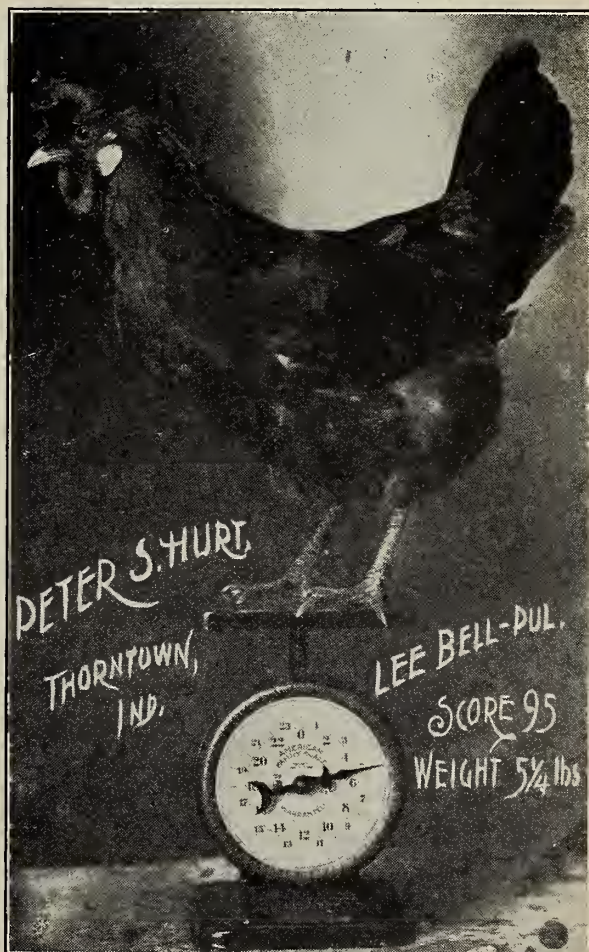 PETER S. HURT,
THORNTOWN,
IND.
LEE BELL-PUL.
SCORE 95
WEIGHT 5¼ lbs
AMERICAN
FAMILY SCALE
WARRANTED
0
1
2
3
4
6
7
8
9
10
11
12
13
14
15
17
19
20
21
22
23